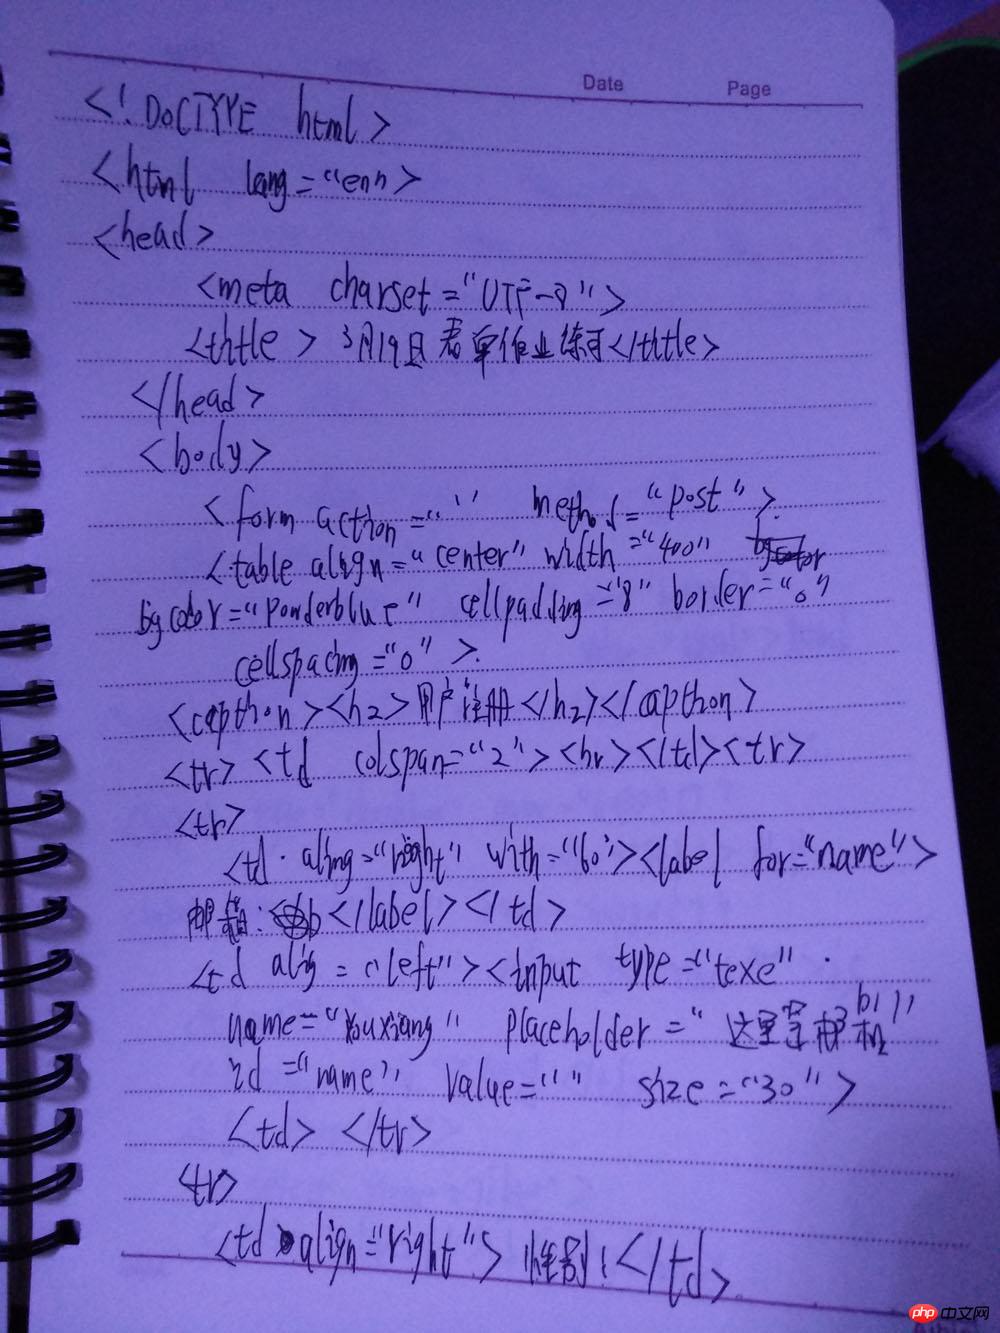 Date Page
<!DOCTYPE html>
<html lang="en">
<head>
<meta charset="UTF-8">
<thtle> 3月19日 表单作业练习</thtle>
</head>
<body>
<form action="" method="post">
<table align="center" width="400"
bgcolor="powderblue" cellpadding="8" border="0"
cellspacing="0">
<capthon><h2>用户注册</h2></capthon>
<tr> <td colspan="2"><hr></td><tr>
<tr>
<td aling="right" with="60"><label for="name">
邮箱: </label></td>
<td alig="left"><input type="texe"
name="youxiang" placeholder="这里写邮
id="name" value="" size="30">
<td> </tr>
<tr>
<td align="right">性别:</td>
php 中文网